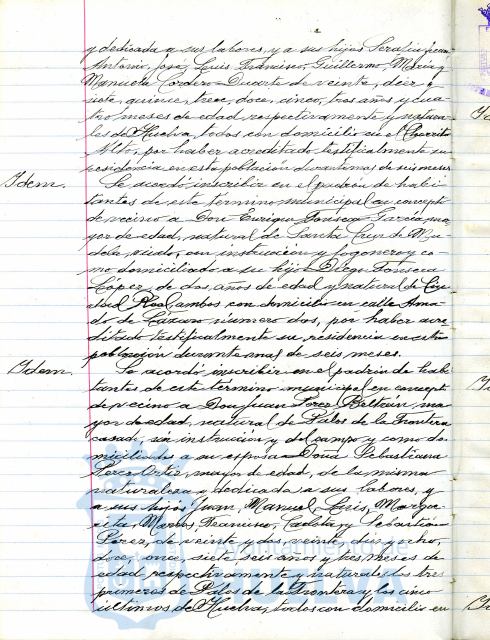 y dedicada a sus labores, y a sus hijos Serafin, Juan
Antonio, José, Luis, Francisco, Guillermo, Maria y
Manuela Cordero Duarte de veinte, diez y
siete, quince, trece, doce, cinco, tres años y cua-
tro meses de edad respectivamente y natura-
les de Huelva, todos con domicilio en el
Alto, por haber acreditado testificalmente su
residencia en esta población durante mas de seis meses
Idem. Se acordó inscribir en el padrón de habi-
tantes de este término municipal en concepto
de vecino a Don Enrique Fonseca García, ma-
yor de edad, natural de Santa Cruz de Mu-
dela, viudo, con instrucción y fogonero y co-
mo domiciliado a su hijo Diego Fonseca
López, de dos años de edad y natural de Ciu-
dad Real, ambos con domicilio en calle Ama-
do de Lázaro número dos, por haber acre-
ditado testificalmente su residencia en esta
población durante mas de seis meses.
Idem. Se acordó inscribir en el padrón de habi-
tantes de este término municipal en concepto
de vecino a Don Juan Pérez Beltrán, ma-
yor de edad, natural de Palos de la Frontera
casado, sin instrucción y del campo y como do-
miciliados a su esposa Doña Sebastiana
Pérez Ortiz, mayor de edad, de la misma
naturaleza y dedicada a sus labores, y
a sus hijos Juan, Manuel, Luis, Marga-
rita, Francisco, Carlota y Sebastián
Pérez, de veinte y dos, veinte, diez y ocho,
doce, once, siete, seis años y tres meses de
edad respectivamente y naturales los tres
primeros de Palos de la Frontera y los cinco
últimos de Huelva, todos con domicilio en
Ayuntamiento de
HUELVA